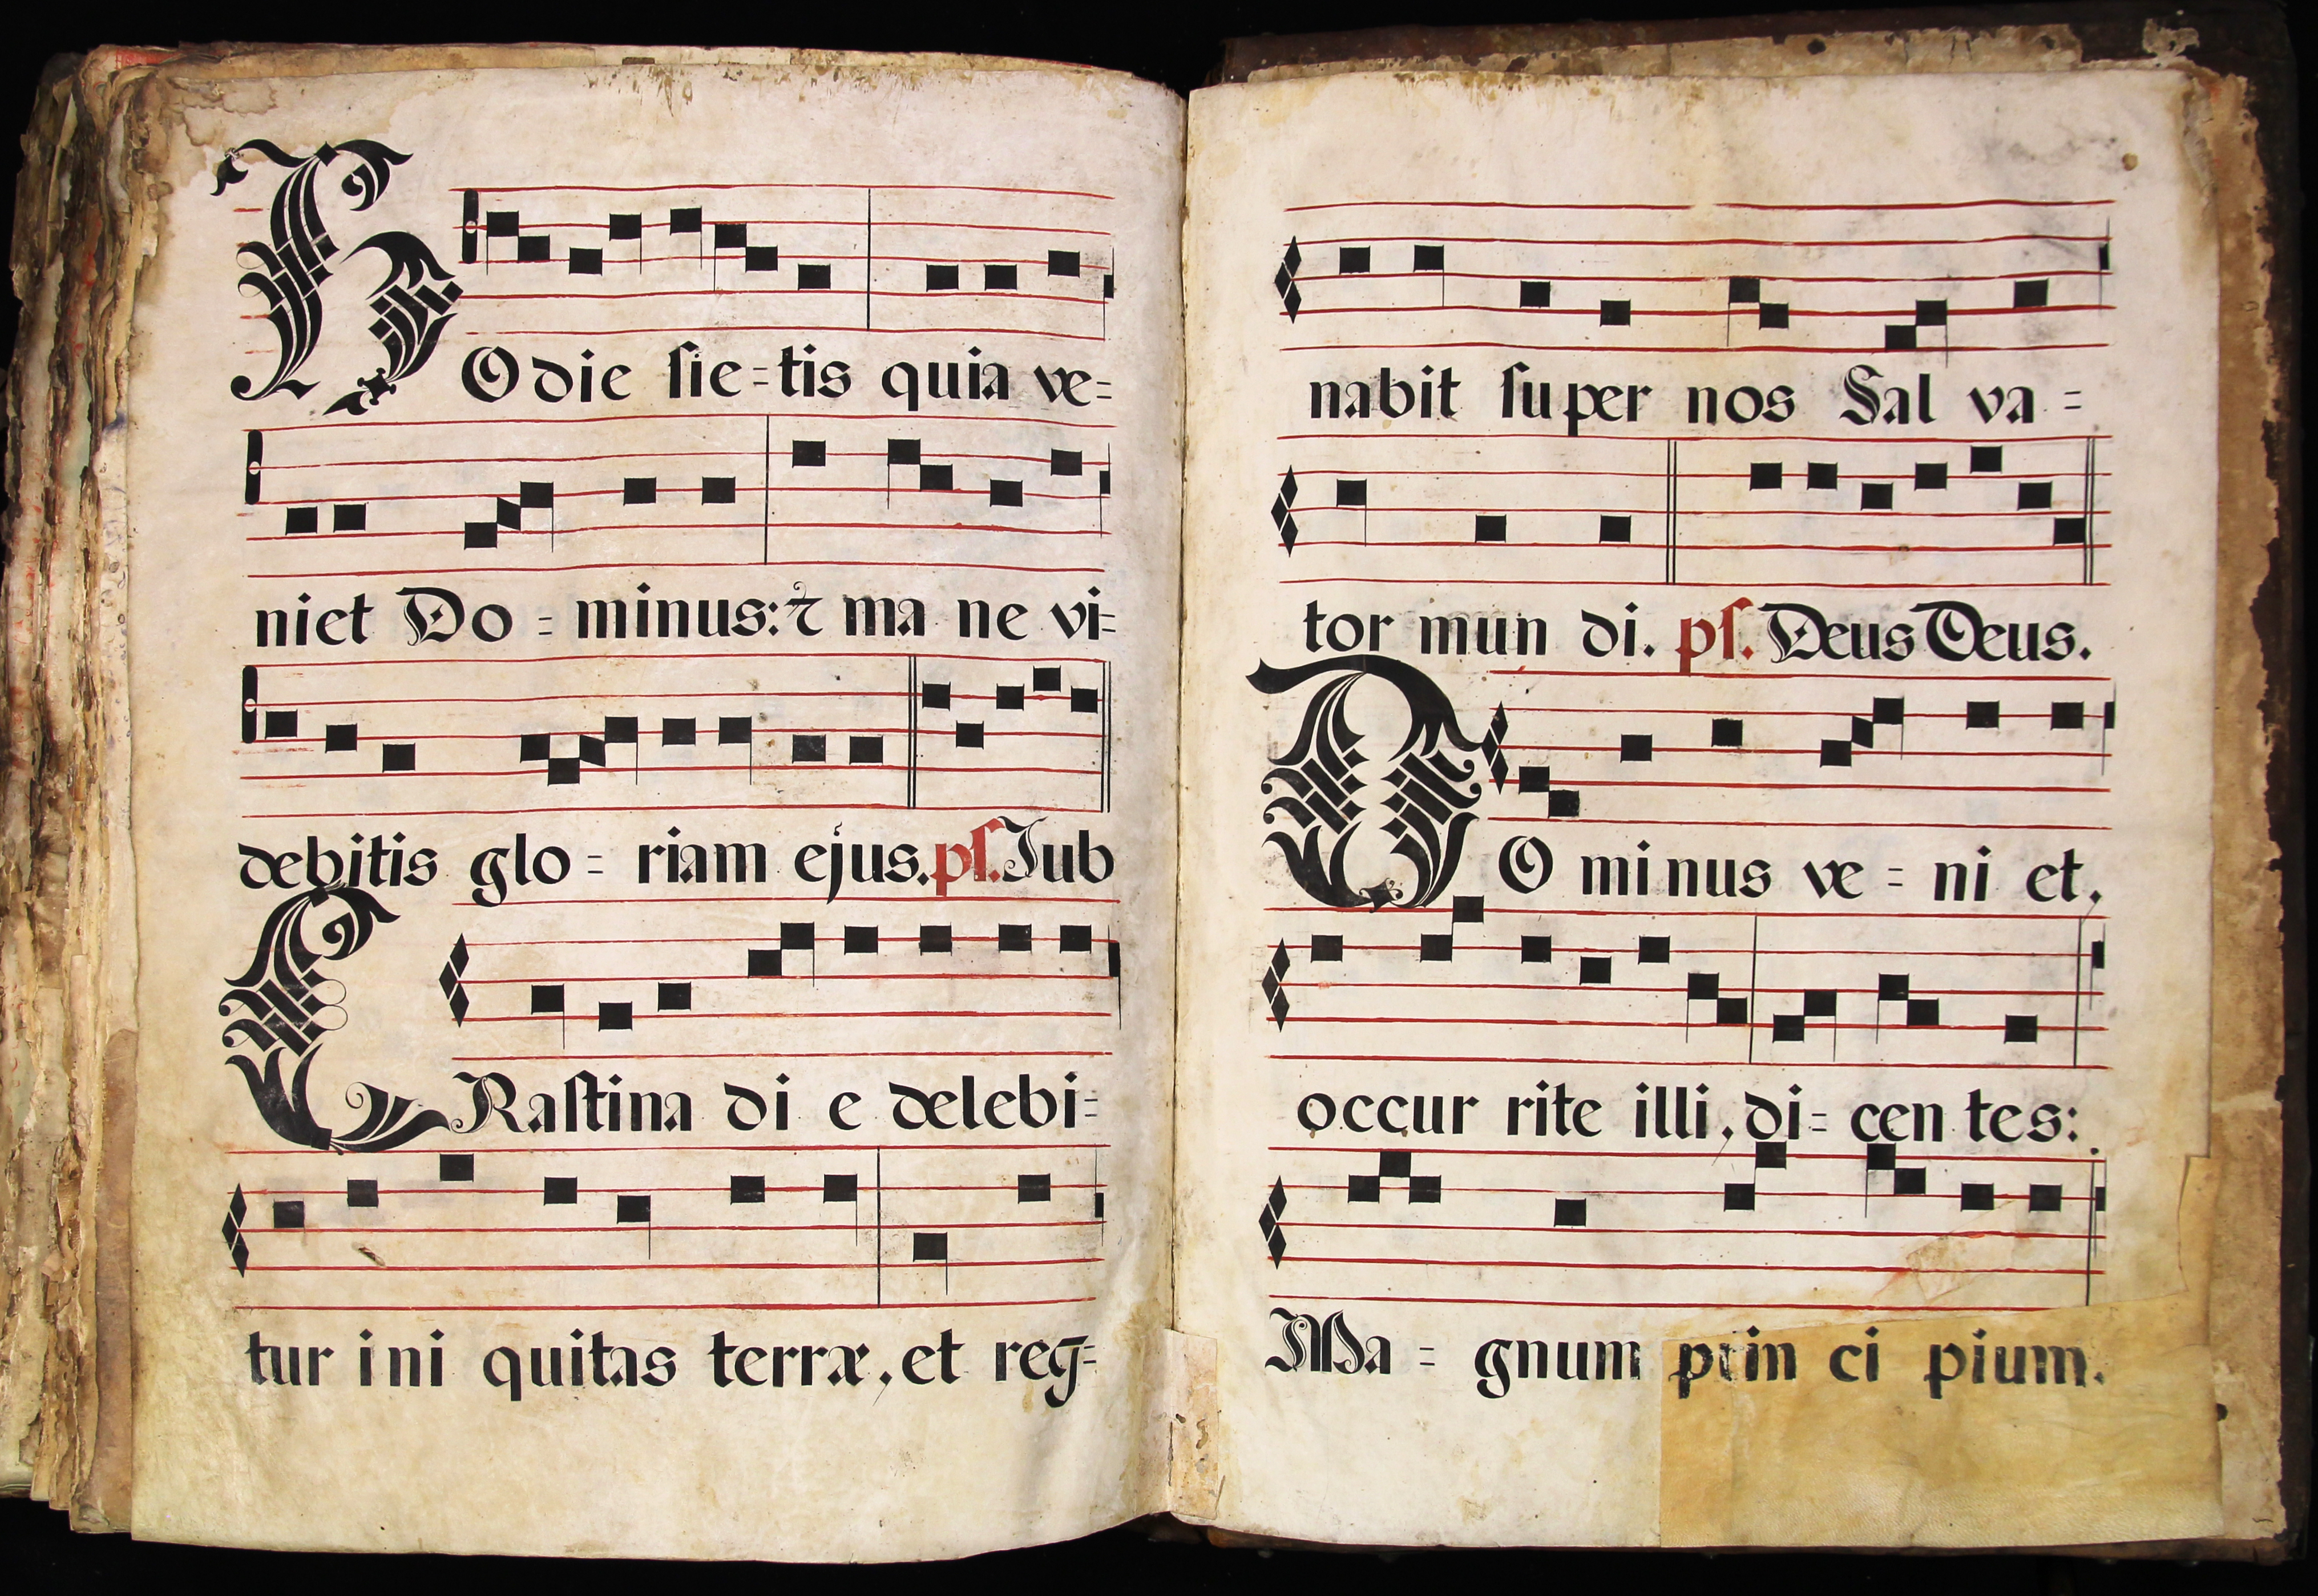 HOdie sie=tis quia ve=
niet Do = minus: ⁊ ma ne vi=
debitis glo = riam ejus. ps. Jub
CRastina di e delebi=
tur ini quitas terræ, et reg=
nabit super nos Sal va =
tor mun di. ps. Deus Deus.
DO minus ve = ni et,
occur rite illi, di= cen tes:
Ma = gnum prin ci pium.